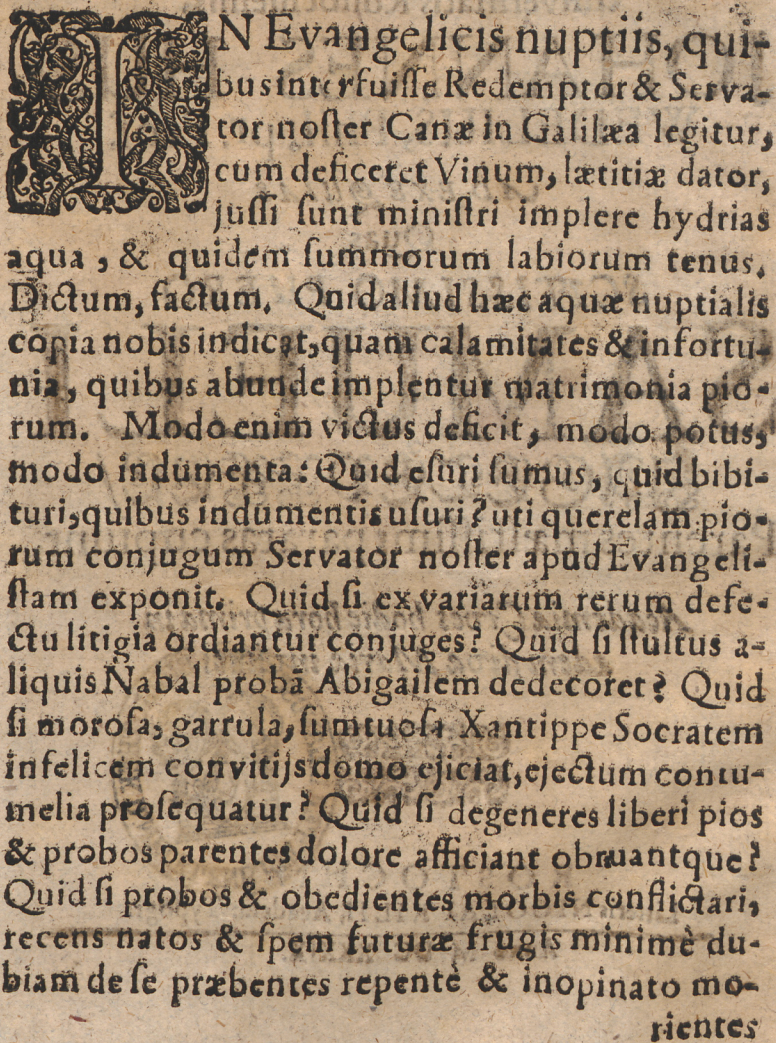 IN Evangelicis nuptiis, qui-
bus interfuiſſe Redemptor & Serva-
tor noſter Canæ in Galilæa legitur,
cum deficeret Vinum, lætitiæ dator,
juſſi ſunt miniſtri implere hydrias
aqua, & quidem ſummorum labiorum tenus.
Dictum, factum. Quid aliud hæc aquæ nuptialis
copia nobis indicat, quam calamitates & infortu-
nia, quibus abunde implentur matrimonia pio-
rum. Modo enim victus deficit, modo potus,
modo indumenta: Quid eſuri ſumus, quid bibi-
turi, quibus indumentis uſuri? uti querelam pio-
rum conjugum Servator noſter apud Evangeli-
ſtam exponit. Quid ſi ex variarum rerum defe-
ctu litigia ordiantur conjuges? Quid ſi ſtultus a-
liquis Nabal probã Abigailem dedecoret? Quid
ſi moroſa, garrula, ſumtuoſa Xantippe Socratem
infelicem convitijs domo ejiciat, ejectum contu-
melia proſequatur? Quid ſi degeneres liberi pios
& probos parentes dolore afficiant obruantque?
Quid ſi probos & obedientes morbis conflictari,
recens natos & ſpem futuræ frugis minimè du-
biam de ſe præbentes repentè & inopinato mo-
rientes